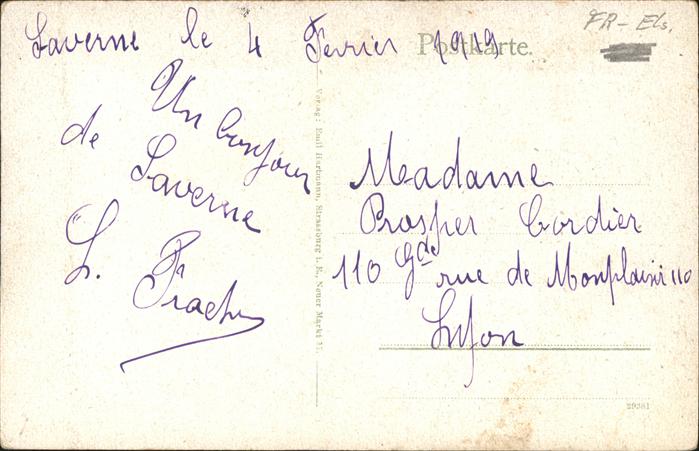 Saverne le 4 Fevrier 1919
Postkarte.
FR - Els.
Un bonjour
de Saverne
L.
Madame
Prosper Cordier
110 Gde rue de Monplaisir 110
Lyon
Verlag: Emil Hartmann, Strassburg i. E., Neuer Markt
29381